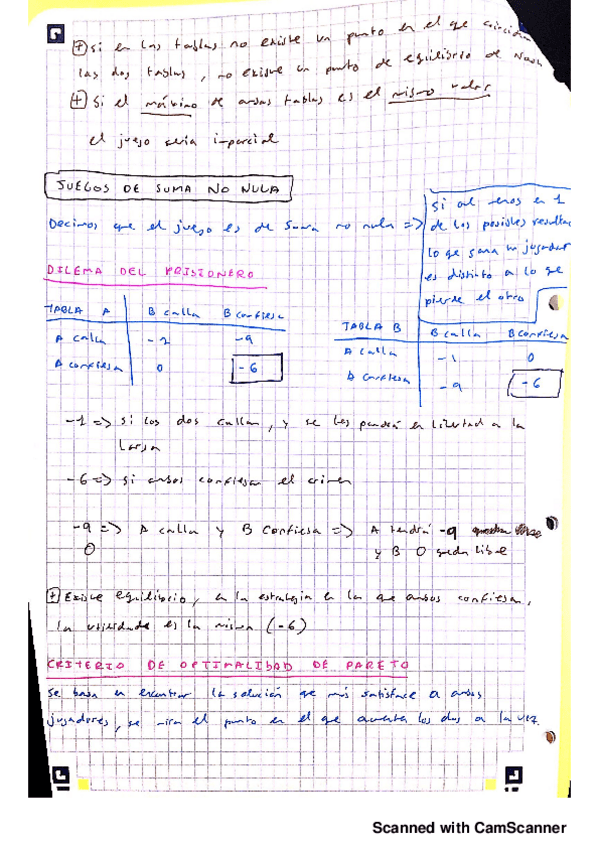 + Si en las tablas no existe un punto en el que coincidan
las dos tablas, no existe un punto de equilibrio de Nash
+ Si el máximo de ambas tablas es el mismo valor
el juego sería imparcial
JUEGOS DE SUMA NO NULA
Decimos que el juego es de suma no nula =>
Si al menos en 1
de los posibles resultados
lo que gana un jugador
es distinto a lo que
pierde el otro
DILEMA DEL PRISIONERO
TABLA A B calla B confiesa
A calla -1 -9
A confiesa 0 -6
TABLA B B calla B confiesa
A calla -1 0
A confiesa -9 -6
-1 => si los dos callan, y se les pondrá en libertad a la
larga
-6 => si ambos confiesan el crimen
-9 => A calla y B confiesa => A tendrá -9
0 y B 0 queda libre
+ Existe equilibrio, en la estrategia en la que ambos confiesan,
la utilidad es la misma (-6)
CRITERIO DE OPTIMALIDAD DE PARETO
se basa en encontrar la solución que más satisface a ambos
jugadores, se mira el punto en el que aumenta los dos a la vez.
Scanned with CamScanner